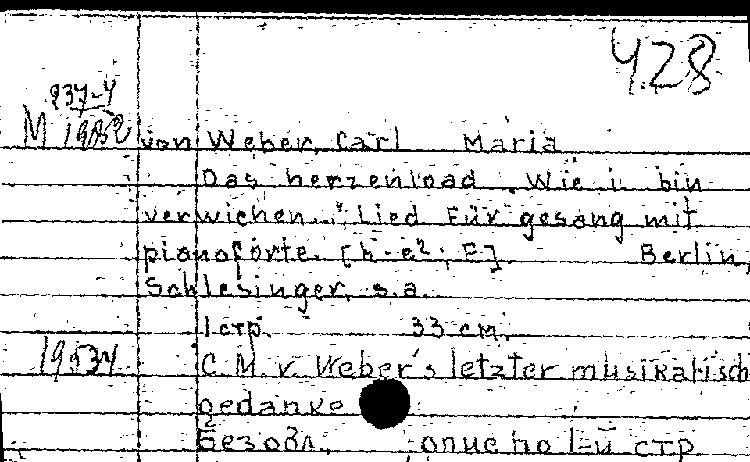 428
237-4
M 19852 von Weber, Carl Maria
Das herzenload "Wie i bin
verwichen..." Lied für gesang mit
pianoforte. [h-e²; E] Berlin,
Schlesinger, s.a.
1 стр. 33 см.
19534 C. M. v. Weber's letzter musikalisch
gedanke
Без обл., описно 1-й стр.